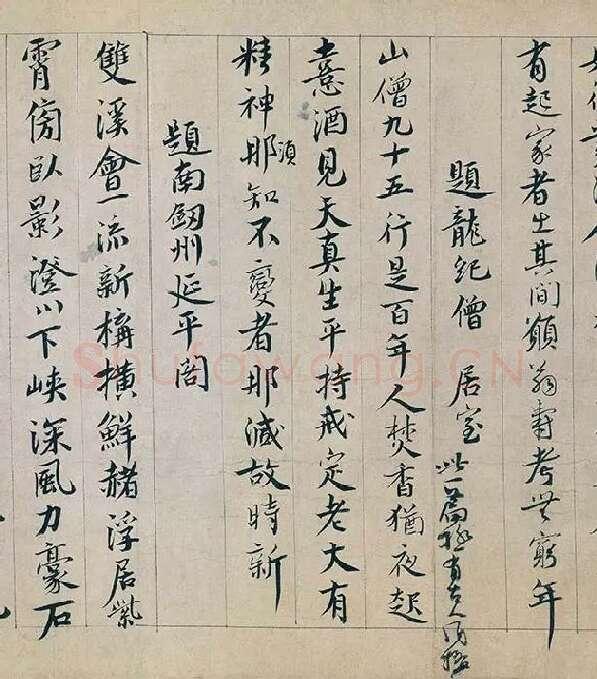 有起家者生其間願翁壽考無窮年
題龍紀僧居室 此一篇極有古人風格
山僧九十五行是百年人焚香猶夜起
憙酒見天真生平持戒定老大有
精神那須知不變者那減故時新
題南劔州延平閣
雙溪會一流新構橫鮮赭浮居紫
霄傍臥影澄川下峽深風力豪石
Shufawang.CN